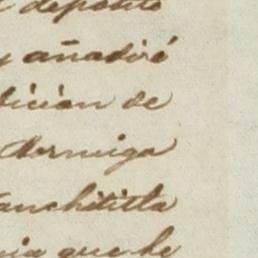 deposito
y añadiré
dicion de
hormiga
anchititla
cia que he